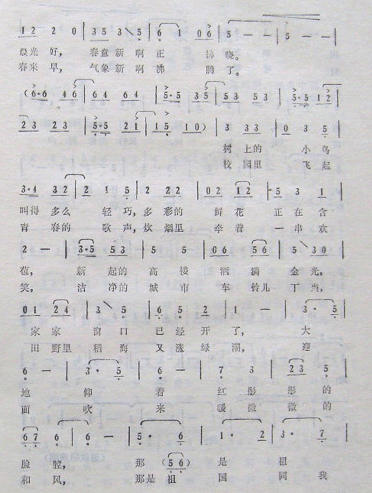 1 2 2 0 | 3 5 3 5 | 6 1 0 6 | 5 — — | 5 — — |
晨光好， 春意新啊正 拂晓。
春来早， 气象新啊沸 腾了。
(6·6 4 6 | 6 4 6 4 | 5·5 3 5 | 5 3 5 3 | 5·5 1 2 |
2 3 2 3 | 5·5 2 1 | 1 5 1 0) | 3 3 3 | 0 3 5 |
树上的 小鸟
校园里 飞起
3·4 3 2 | 2 1 5 | 2 2 2 | 0 2 1 2 | 5 3 1 |
叫得多么 轻巧，多彩的 鲜花 正在含
青春的 歌声，炊烟里 牵着 一串欢
2 — | 3·5 5 3 | 5 1 5 | 0 6 5 6 | 5 3 0 |
苞， 新起的高楼 洒满 金光，
笑， 洁净的城市 车铃儿 丁当，
0 1 2 4 | 3 | 6 5 | 2 1 | — 3·5 |
家家 窗口 已经开了， 大
田野里 稻海 又涨绿潮， 迎
6 — | 3·5 | 6 — | 7 3 | 2 3 5 |
地 仰 着 红彤 彤的
面 吹 来 暖微 微的
6 7 6 | 6 — | 5·6 | 1·2 | 3·7 |
脸膛， 那(5 6) 是 祖
和风， 那是祖 国 同我